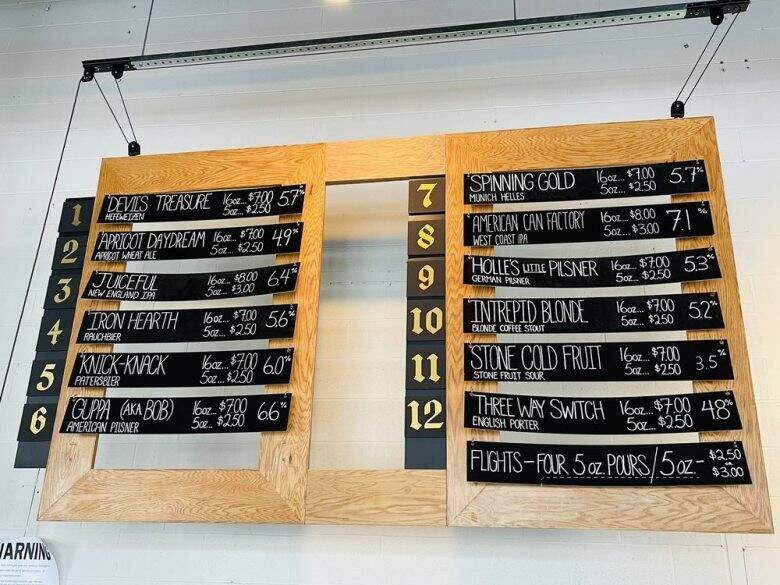 1
DEVILS TREASURE 16oz... $7.00 5.7%
HEFEWEIZEN 5oz... $2.50
2
APRICOT DAYDREAM 16oz... $7.00 4.9%
APRICOT WHEAT ALE 5oz... $2.50
3
JUICEFUL 16oz... $8.00 6.4%
NEW ENGLAND IPA 5oz... $3.00
4
IRON HEARTH 16oz... $7.00 5.6%
RAUCHBIER 5oz... $2.50
5
KNICK-KNACK 16oz... $7.00 6.0%
PATERSBIER 5oz... $2.50
6
GUPPA (AKA BOB) 16oz... $7.00 6.6%
AMERICAN PILSNER 5oz... $2.50
7
SPINNING GOLD 16oz... $7.00 5.7%
MUNICH HELLES 5oz... $2.50
8
AMERICAN CAN FACTORY 16oz... $8.00 7.1%
WEST COAST IPA 5oz... $3.00
9
HOLLE'S LITTLE PILSNER 16oz... $7.00 5.3%
GERMAN PILSNER 5oz... $2.50
10
INTREPID BLONDE 16oz... $7.00 5.2%
BLONDE COFFEE STOUT 5oz... $2.50
11
STONE COLD FRUIT 16oz... $7.00 3.5%
STONE FRUIT SOUR 5oz... $2.50
12
THREE WAY SWITCH 16oz... $7.00 4.8%
ENGLISH PORTER 5oz... $2.50
FLIGHTS - FOUR 5 oz. POURS / 5oz. - $2.50
OR
$3.00
WARNING